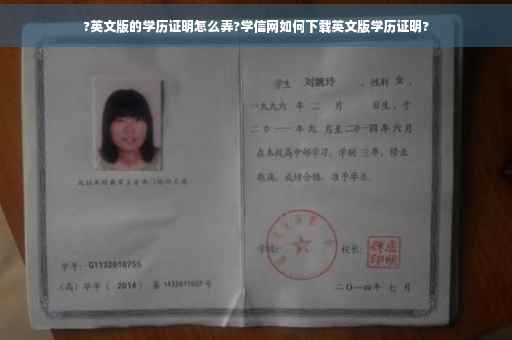 ?英文版的学历证明怎么弄?学信网如何下载英文版学历证明?
学号: G1132010755
(高) 毕字 ( 2014 ) 第 1432011027 号
学生 刘婉玲 , 性别 女 ,
一九九六 年 二 月 日生, 于
二〇一一 年 九 月至 二〇一四 年 六 月
在本校高中部学习, 学制 三年, 修业
期满, 成绩合格, 准予毕业。
学校:
校长:
二〇一四年 七 月